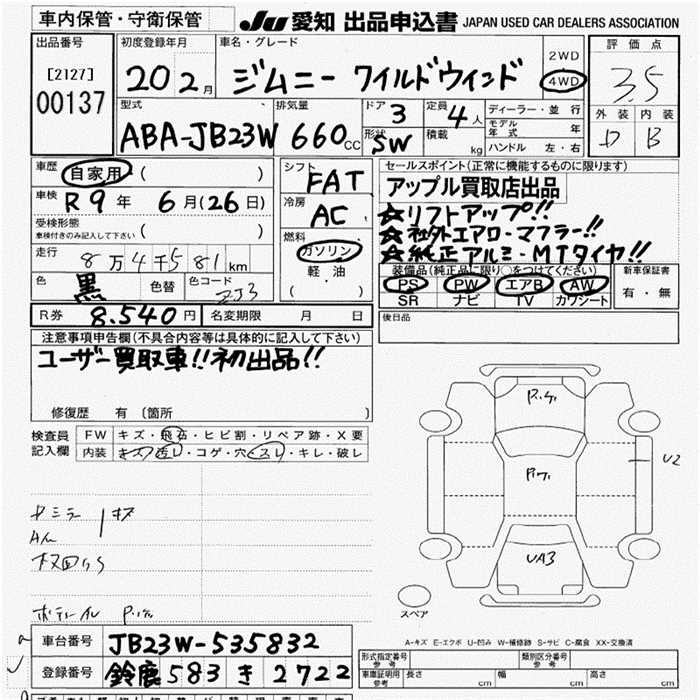 車内保管・守衛保管
JU 愛知 出品申込書 JAPAN USED CAR DEALERS ASSOCIATION
出品番号
[2127]
00137
初度登録年月
20 2月
車名・グレード
ジムニー ワイルドウィンド
2WD
4WD
評価点
3.5
外装 内装
D B
型式
ABA-JB23W
排気量
660cc
ドア 3
形状 SW
定員 4人
積載 kg
ディーラー・並行
モデル年式 年
ハンドル 左・右
車歴 自家用 ( )
車検 R9年 6月(26日)
受検形態
車検付きのみ記入して下さい ( )
走行 8万4千581km
色 黒 色替 色コード ZJ3
R券 8.540円 名変期限 月 日
シフト FAT
冷房 AC
燃料
ガソリン
軽油
( )
セールスポイント(正常に機能するものに限ります)
アップル買取店出品
☆リフトアップ!!
☆社外エアロ・マフラー!!
☆純正アルミ・MTタイヤ!!
装備品(純正品に限り○をつけてください)
PS PW エアB AW
SR ナビ TV カワシート
新車保証書
有・無
後日品
注意事項申告欄(不具合内容等は具体的に記入して下さい)
ユーザー買取車!!初出品!!
修復歴 有 〔箇所 〕
検査員記入欄
FW キズ・飛石・ヒビ割・リペア跡・X要
内装 キズ・汚レ・コゲ・穴・スレ・キレ・破レ
P.17.
P17.
UA3
U2
スペア
A-キズ E-エクボ U-凹み W-補修跡 S-サビ C-腐食 XX-交換済
車台番号 JB23W-535832
登録番号 鈴鹿 583 き 2722
形式指定番号 参考
類別区分番号 参考
車庫証明用 参考 長さ cm 幅 cm 高さ cm